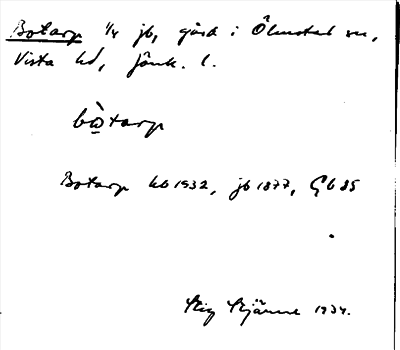 Botarp 1/4 jb, gård i Ölmstad sn,
Vista hd, Jönk. l.
bò̱tarp
Botarp kb 1932, jb 1877, Gb 85
Stig Stjärne 1934.